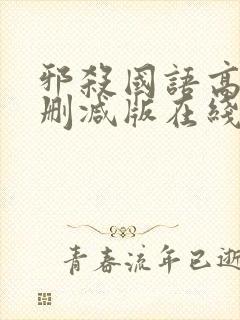 邪殺國語高
刪減版在綫
青春流年已逝